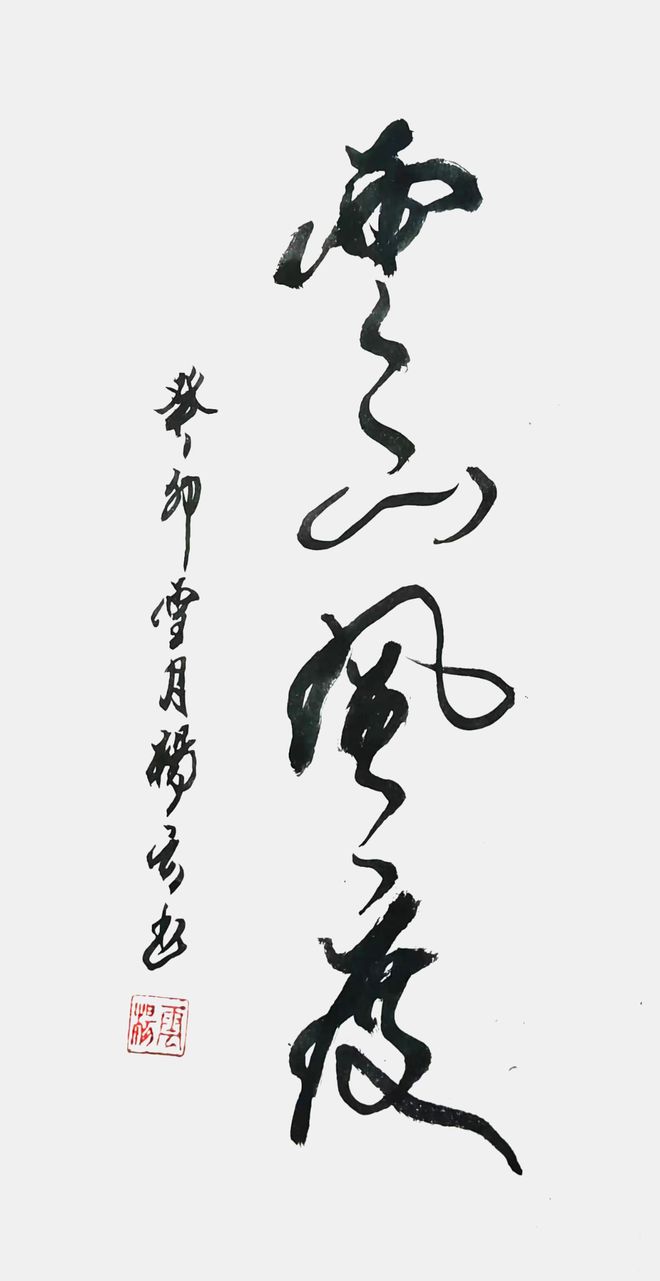 雲山風度
癸卯雪月楊雲書
雲楊